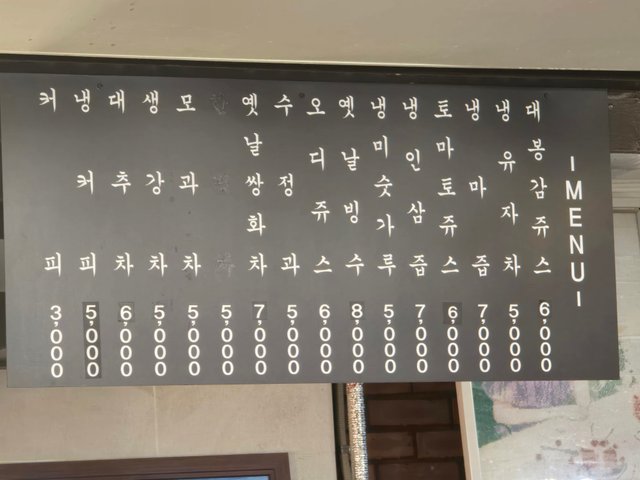 MENU
대봉감쥬스 6,000
냉유자차 5,000
냉마즙 7,000
토마토쥬스 6,000
냉인삼즙 7,000
냉미숫가루 5,000
옛날빙수 8,000
오디쥬스 6,000
수정과 5,000
옛날쌍화차 7,000
5,000
모과차 5,000
생강차 5,000
대추차 6,000
냉커피 5,000
커피 3,000